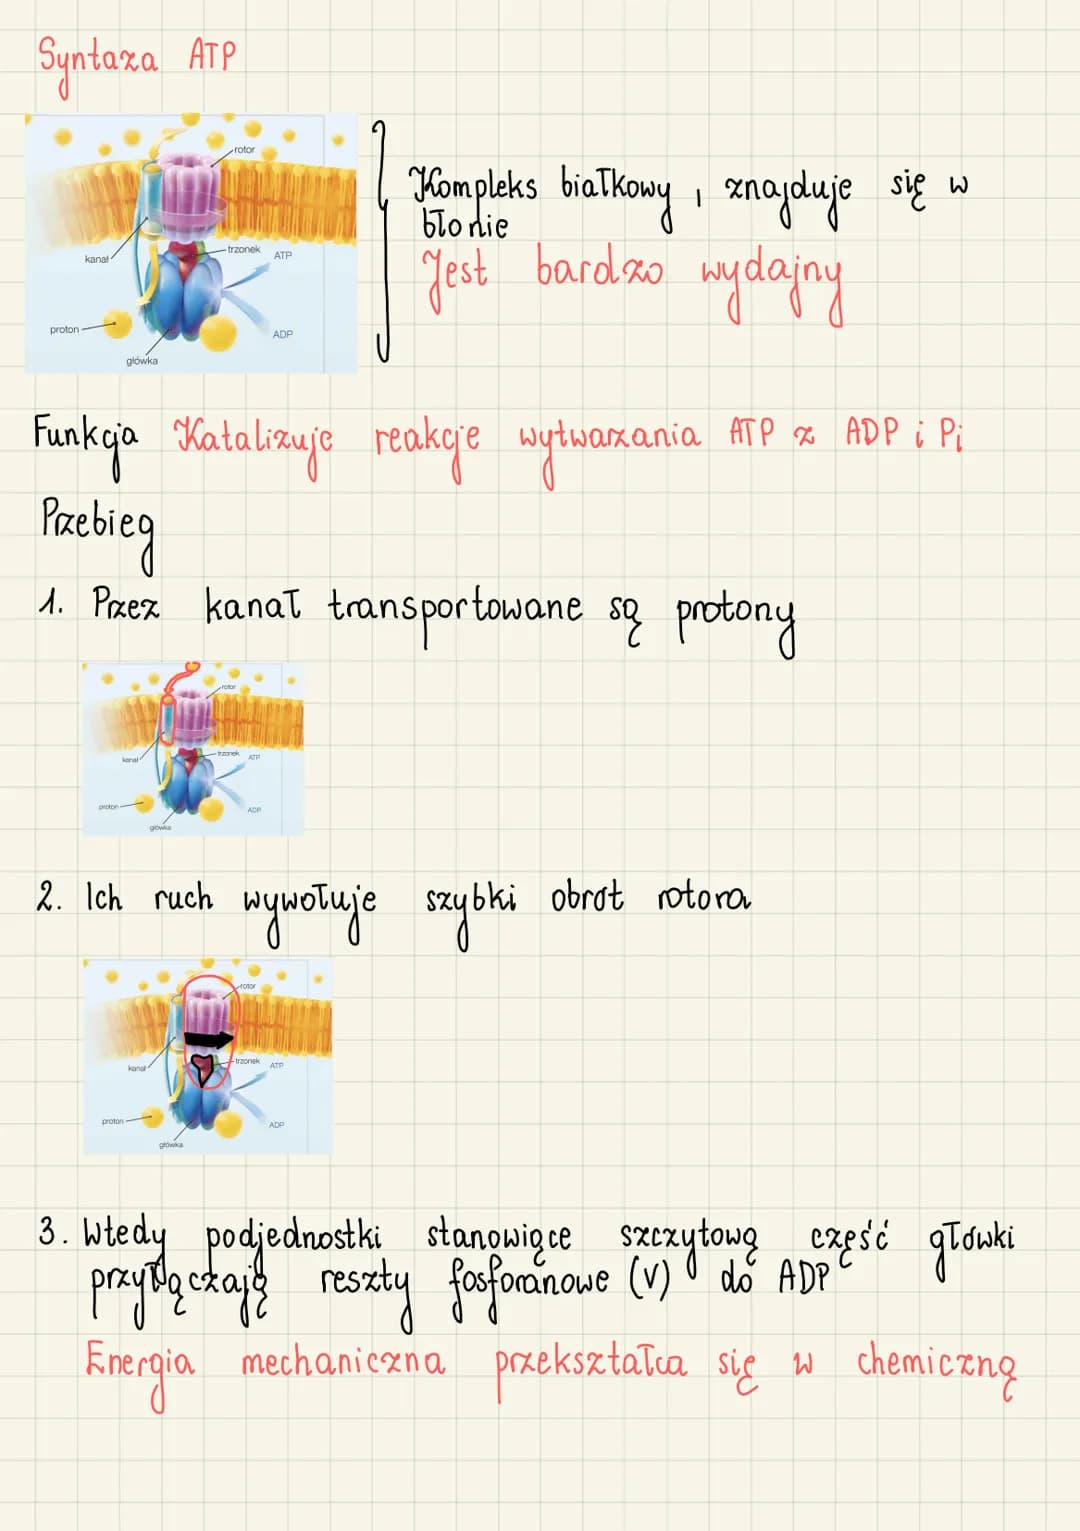 Syntaza ATP
rotor
kanał
trzonek
ATP
proton
ADP
główka
Kompleks białkowy, znajduje się w
błonie
Jest bardzo wydajny
Funkcja Katalizuje reakcje wytwarzania ATP z ADP i Pi
Przebieg
1. Przez kanał transportowane są protony
rotor
kanał
trzonek
ATP
proton
ADP
główka
2. Ich ruch wywołuje szybki obrót rotora
rotor
kanał
trzonek
ATP
proton
ADP
główka
3. Wtedy podjednostki stanowiące szczytową część główki
przyłączają reszty fosforanowe (V) do ADP
Energia mechaniczna przekształca się w chemiczną